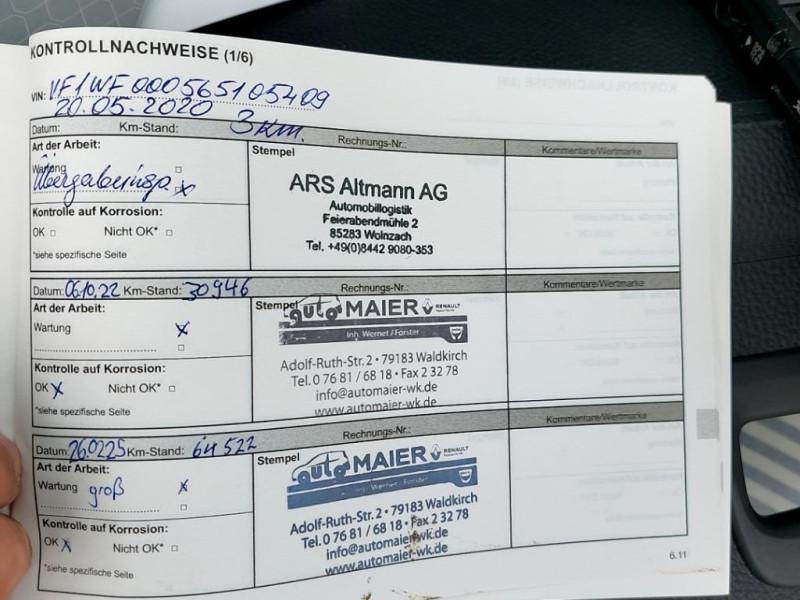 KONTROLLNACHWEISE (1/6)
VIN: VF1WF000565105409
20.05.2020 3 km.
Datum: Km-Stand: Rechnungs-Nr.:
Art der Arbeit:
Wartung
Übergabeinsp. x
Kontrolle auf Korrosion:
OK Nicht OK*
*siehe spezifische Seite
Stempel
ARS Altmann AG
Automobillogistik
Feierabendmühle 2
85283 Wolnzach
Tel. +49(0)8442 9080-353
Kommentare/Wertmarke
Datum: 06.10.22 Km-Stand: 30946 Rechnungs-Nr.:
Art der Arbeit:
Wartung x
Kontrolle auf Korrosion:
OK x Nicht OK*
*siehe spezifische Seite
Stempel
auto MAIER RENAULT
Inh. Wernet / Forster
Adolf-Ruth-Str. 2 • 79183 Waldkirch
Tel. 0 76 81 / 68 18 • Fax 2 32 78
info@automaier-wk.de
www.automaier-wk.de
Kommentare/Wertmarke
Datum: 26.02.25 Km-Stand: 64522 Rechnungs-Nr.:
Art der Arbeit:
Wartung groß x
Kontrolle auf Korrosion:
OK x Nicht OK*
*siehe spezifische Seite
Stempel
auto MAIER RENAULT
Inh. Wernet / Forster
Adolf-Ruth-Str. 2 • 79183 Waldkirch
Tel. 0 76 81 / 68 18 • Fax 2 32 78
info@automaier-wk.de
www.automaier-wk.de
Kommentare/Wertmarke
6.11